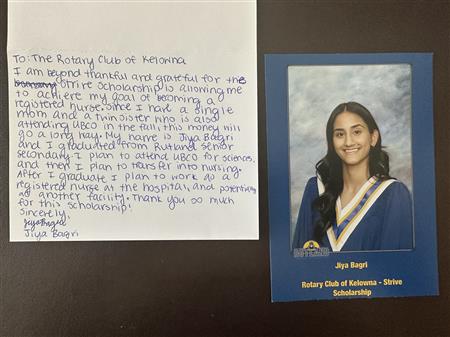 To: The Rotary Club of Kelowna
I am beyond thankful and grateful for the
Strive Scholarship is allowing me
to achieve my goal of becoming a
registered nurse. Since I have a single
mom and a twin sister who is also
attending UBCO in the fall, this money will
go a long way. My name is Jiya Bagri
and I graduated from Rutland Senior
Secondary. I plan to attend UBCO for sciences,
and then I plan to transfer into nursing.
After I graduate I plan to work as a
registered nurse at the hospital, and potentially
at another facility. Thank you so much
for this scholarship!
Sincerely,
Jiya Bagri
Jiya Bagri
Jiya Bagri
Rotary Club of Kelowna - Strive
Scholarship